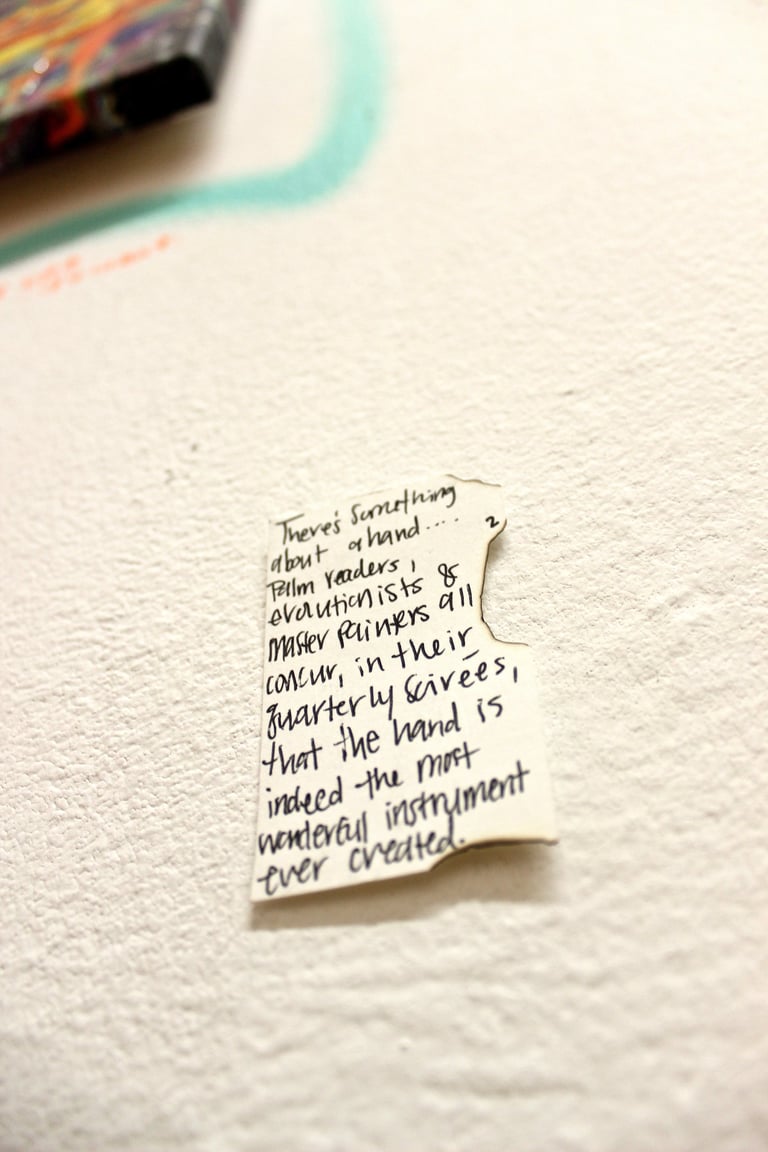 There's something
2
about a hand....
Palm readers,
evolutionists &
master painters all
concur, in their
quarterly soirées,
that the hand is
indeed the most
wonderful instrument
ever created.